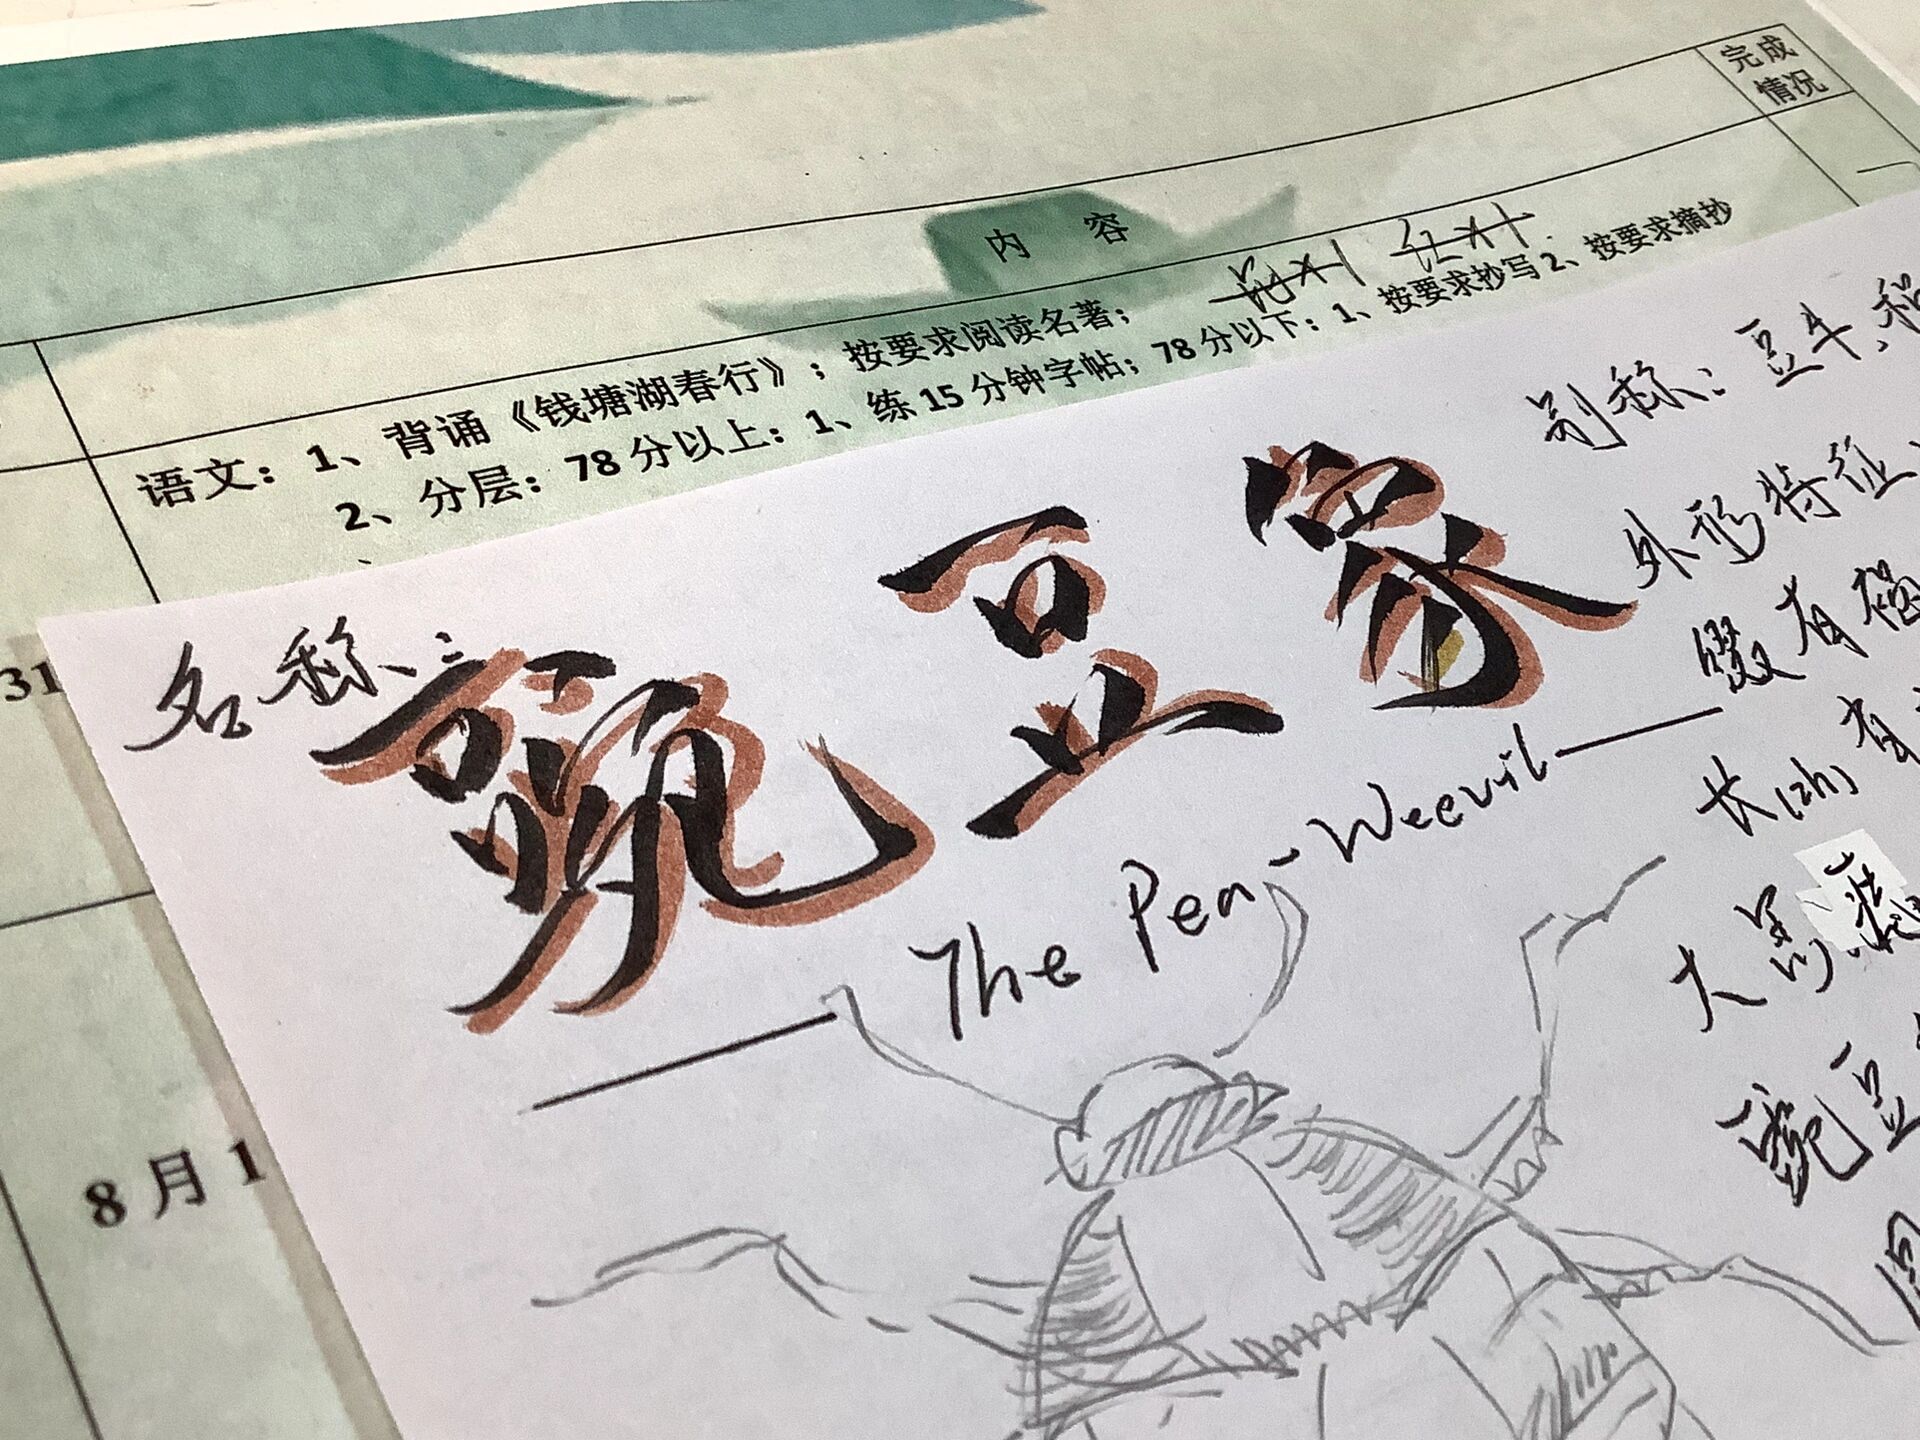 完成
情况
内 容
语文：1、背诵《钱塘湖春行》；按要求阅读名著；
2、分层：78分以上：1、练15分钟字帖；78分以下：1、按要求抄写2、按要求摘抄
31
8月1
名称：
豌豆象
The Pea-Weevil
别称：豆牛、
外形特征
缀有褐
长12m,有
大员
豌豆